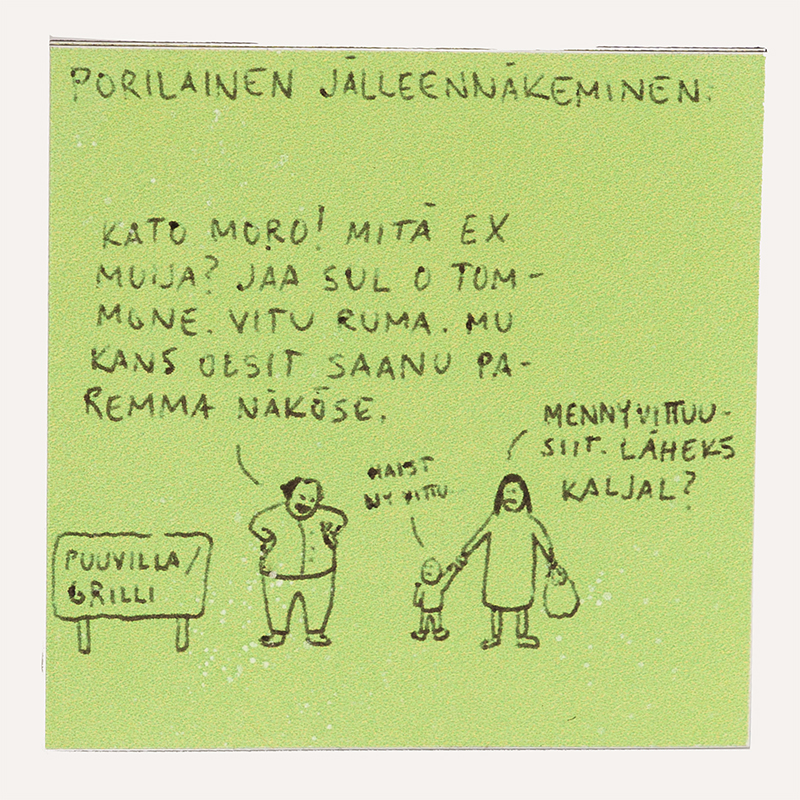 PORILAINEN JÄLLEENNÄKEMINEN.
KATO MORO! MITÄ EX
MUIJA? JAA SUL O TOM-
MONE. VITU RUMA. MU
KANS OLSIT SAANU PA-
REMMA NÄKÖSE.
HAIST
NY VITTU
MENNY VITTUU-
SIIT. LÄHEKS
KALJAL?
PUUVILLA/
GRILLI